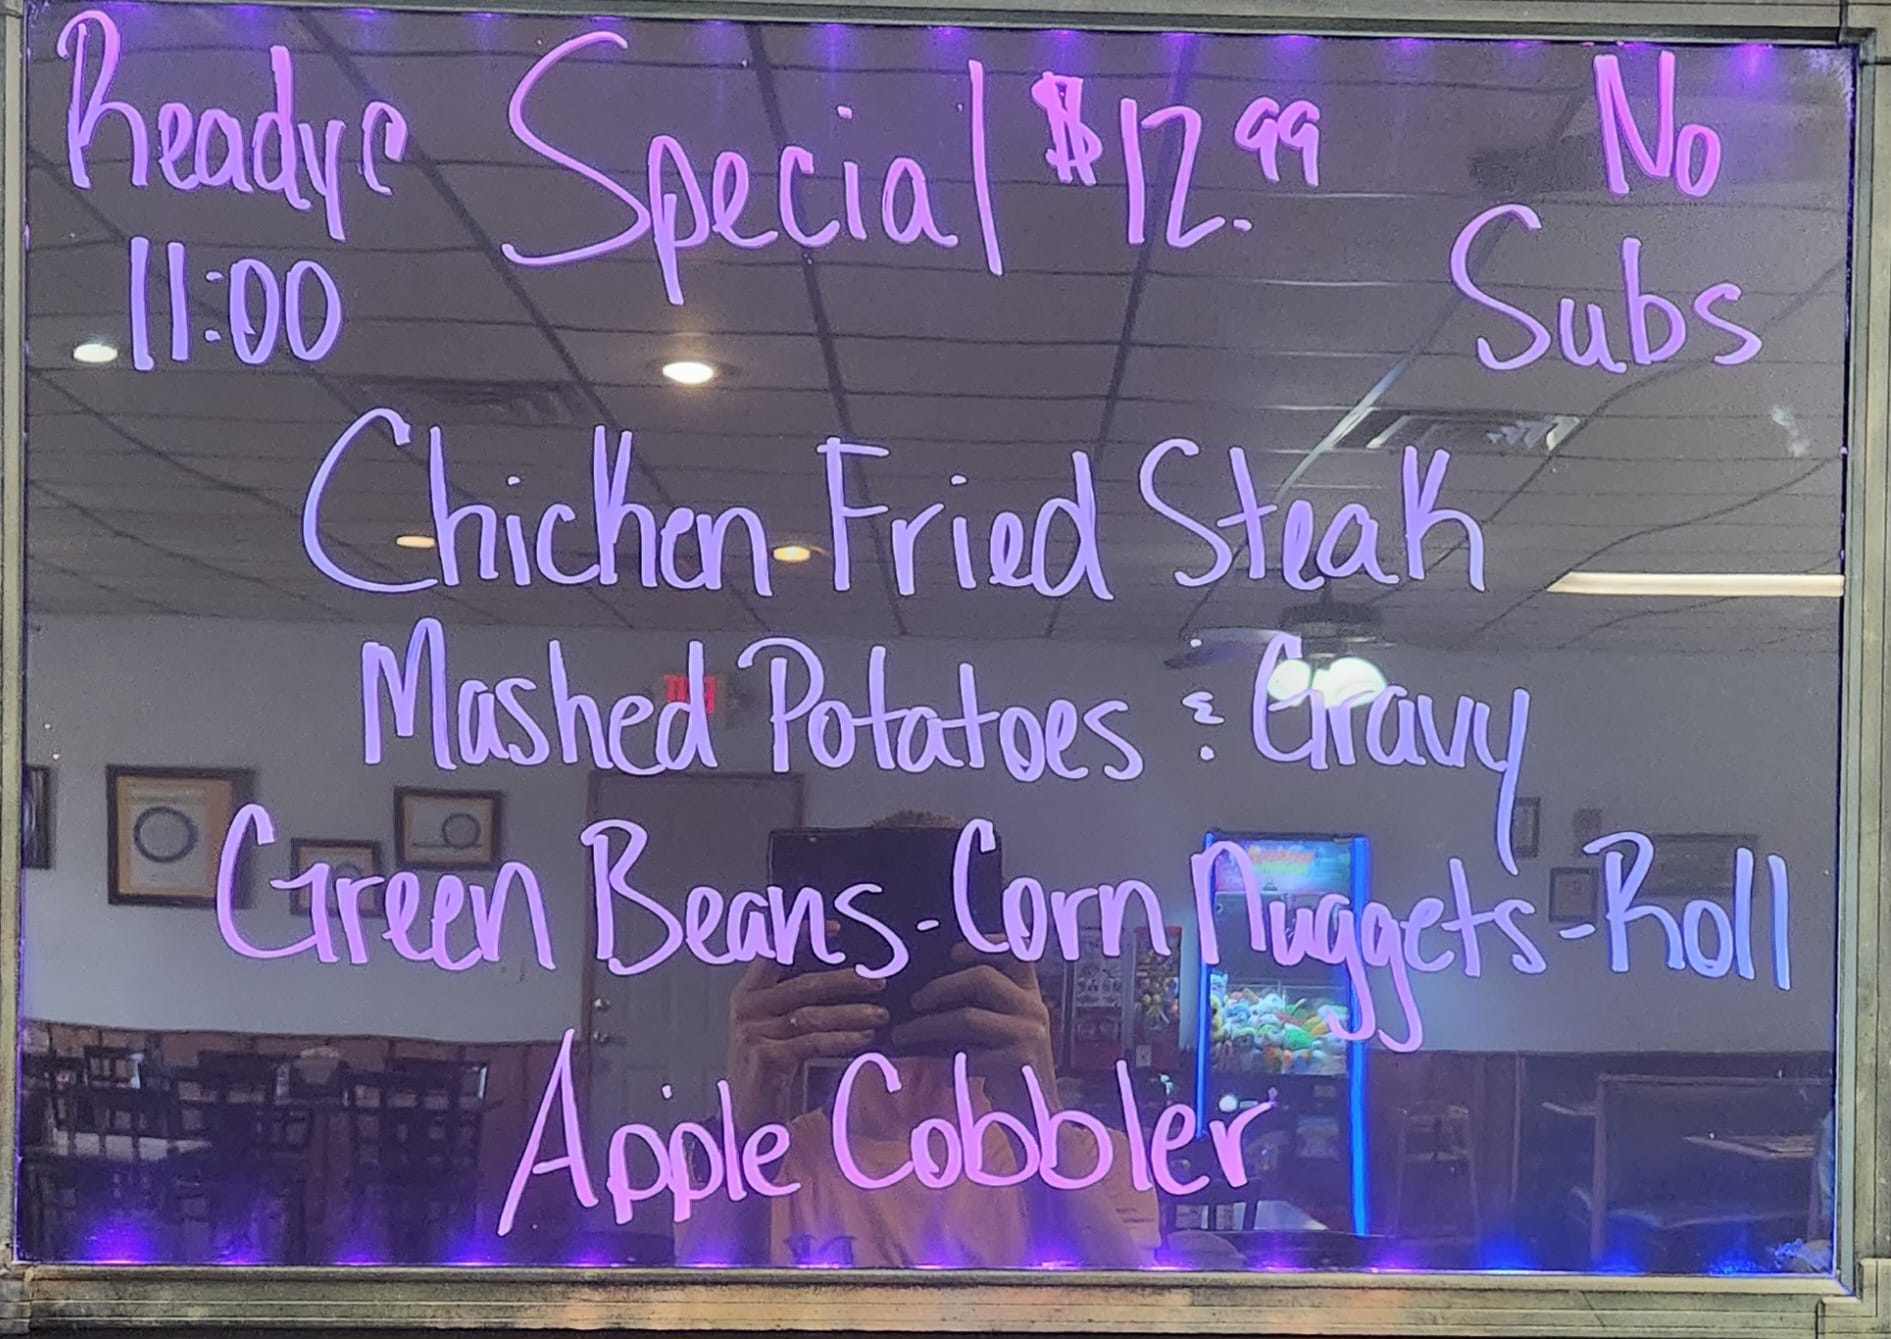 Ready@ Special $12.99 No
11:00 Subs
Chicken Fried Steak
Mashed Potatoes & Gravy
Green Beans-Corn Nuggets-Roll
Apple Cobbler